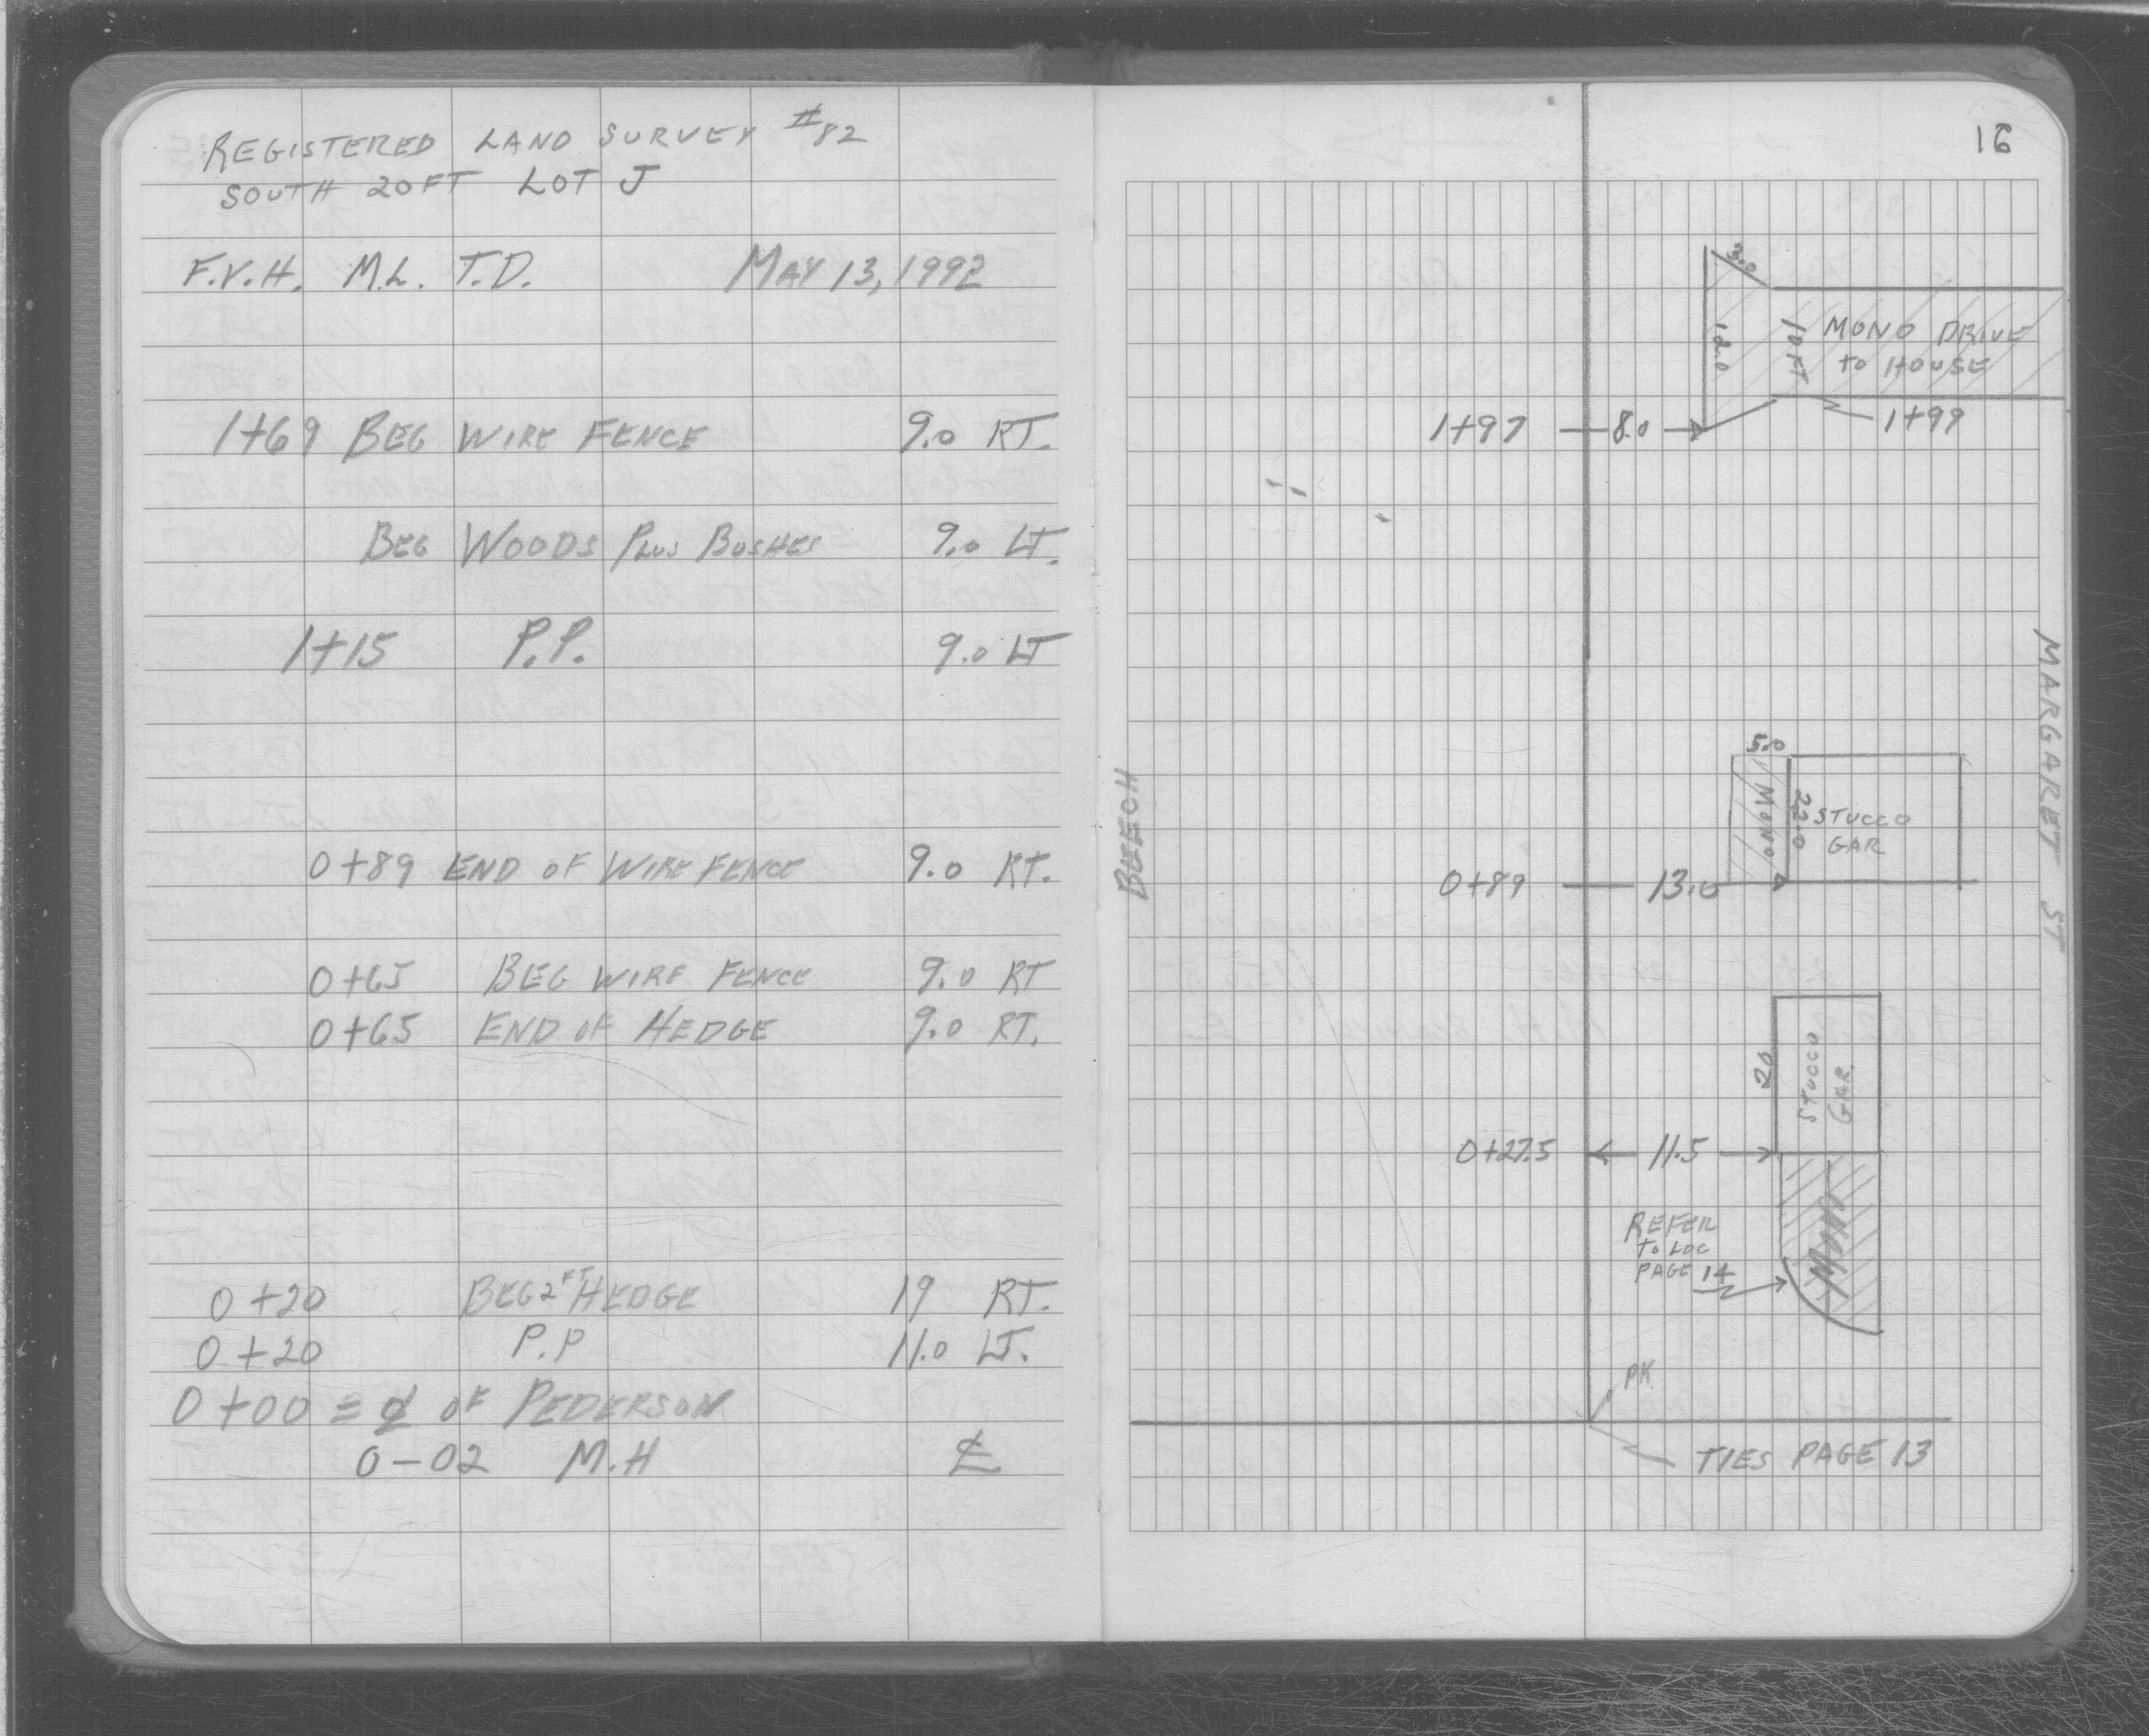 REGISTERED LAND SURVEY #82
SOUTH 20FT LOT J
F.V.H. M.L. T.D. MAY 13, 1992
1+69 BEG WIRE FENCE 9.0 RT.
BEG WOODS PLUS BUSHES 9.0 LT.
1+15 P.P. 9.0 LT
0+89 END OF WIRE FENCE 9.0 RT.
0+65 BEG WIRE FENCE 9.0 RT
0+65 END OF HEDGE 9.0 RT.
0+20 BEG 2FT HEDGE 19 RT.
0+20 P.P 11.0 LT.
0+00 = ℄ OF PEDERSON
0-02 M.H ℄
16
3.0
12.0
10FT
MONO DRIVE
TO HOUSE
1+97 8.0
1+99
MARGARET ST
BEECH
5.0
MONO
22.0
STUCCO
GAR
0+89 13.0
20
STUCCO
GAR
0+27.5 11.5
REFER
TO LOC
PAGE 14
PK.
TIES PAGE 13